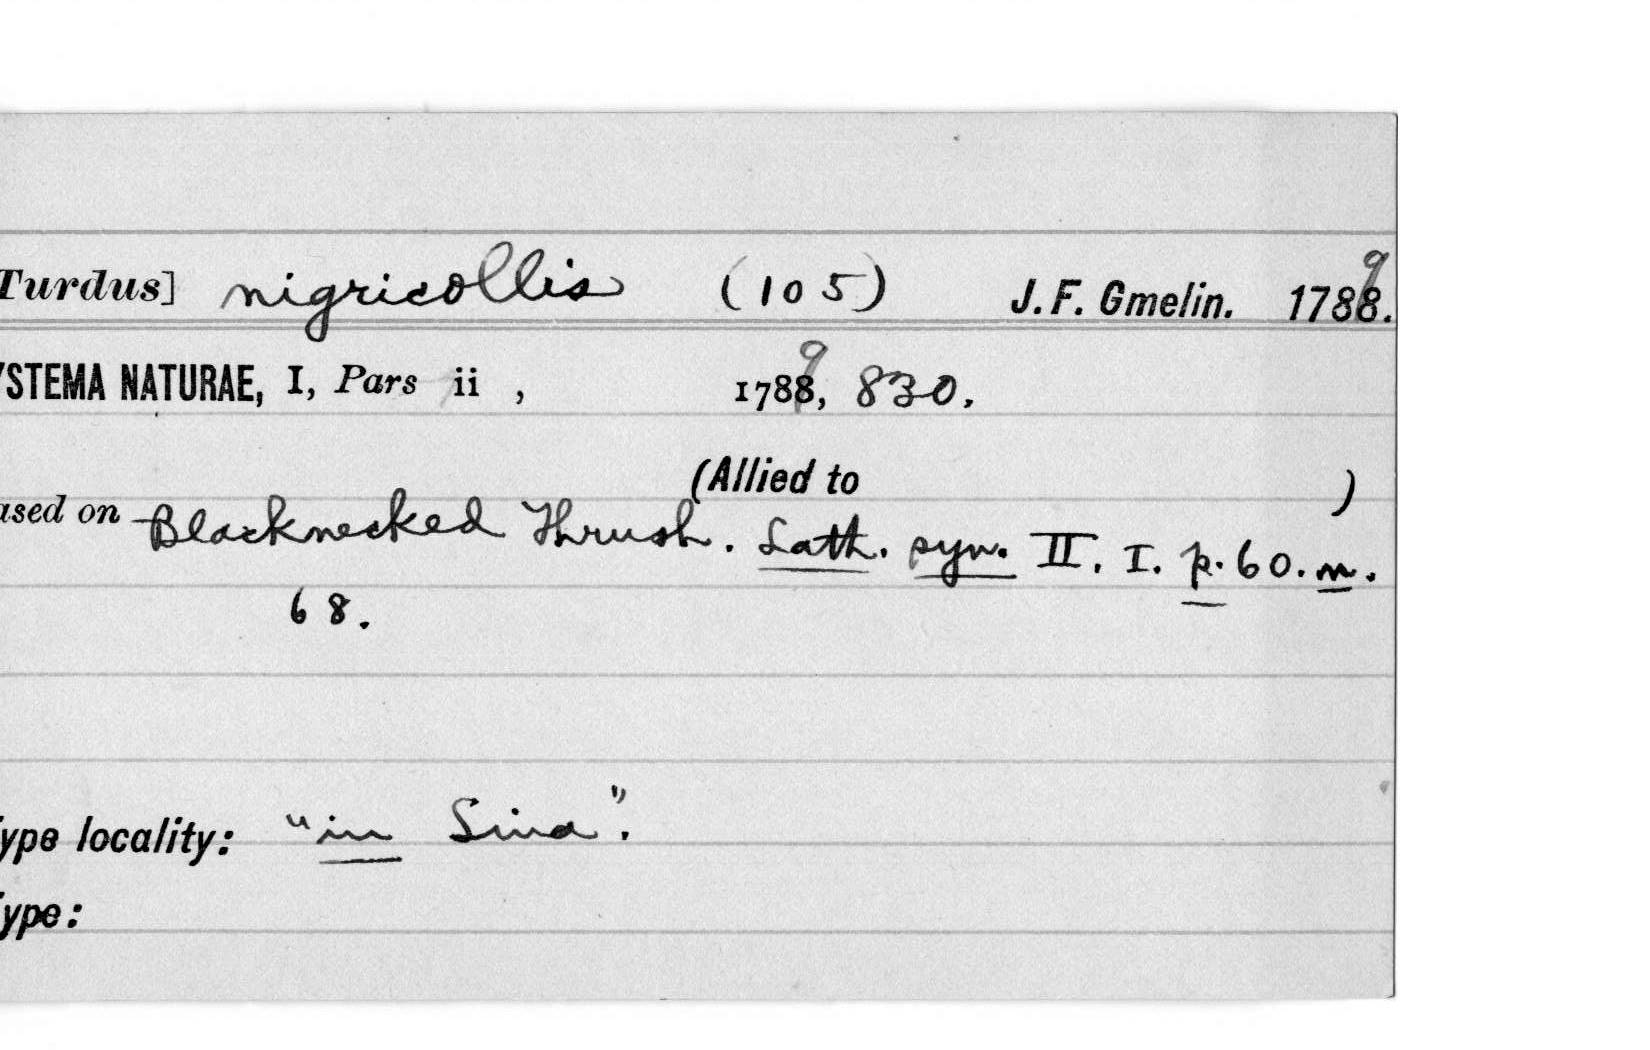 Turdus] nigricollis (105) J. F. Gmelin. 1789.
YSTEMA NATURAE, I, Pars ii , 1789, 830.
(Allied to )
ased on Blacknecked Thrush. Lath. syn. II. I. p. 60. n.
68.
ype locality: "in Sina".
ype: